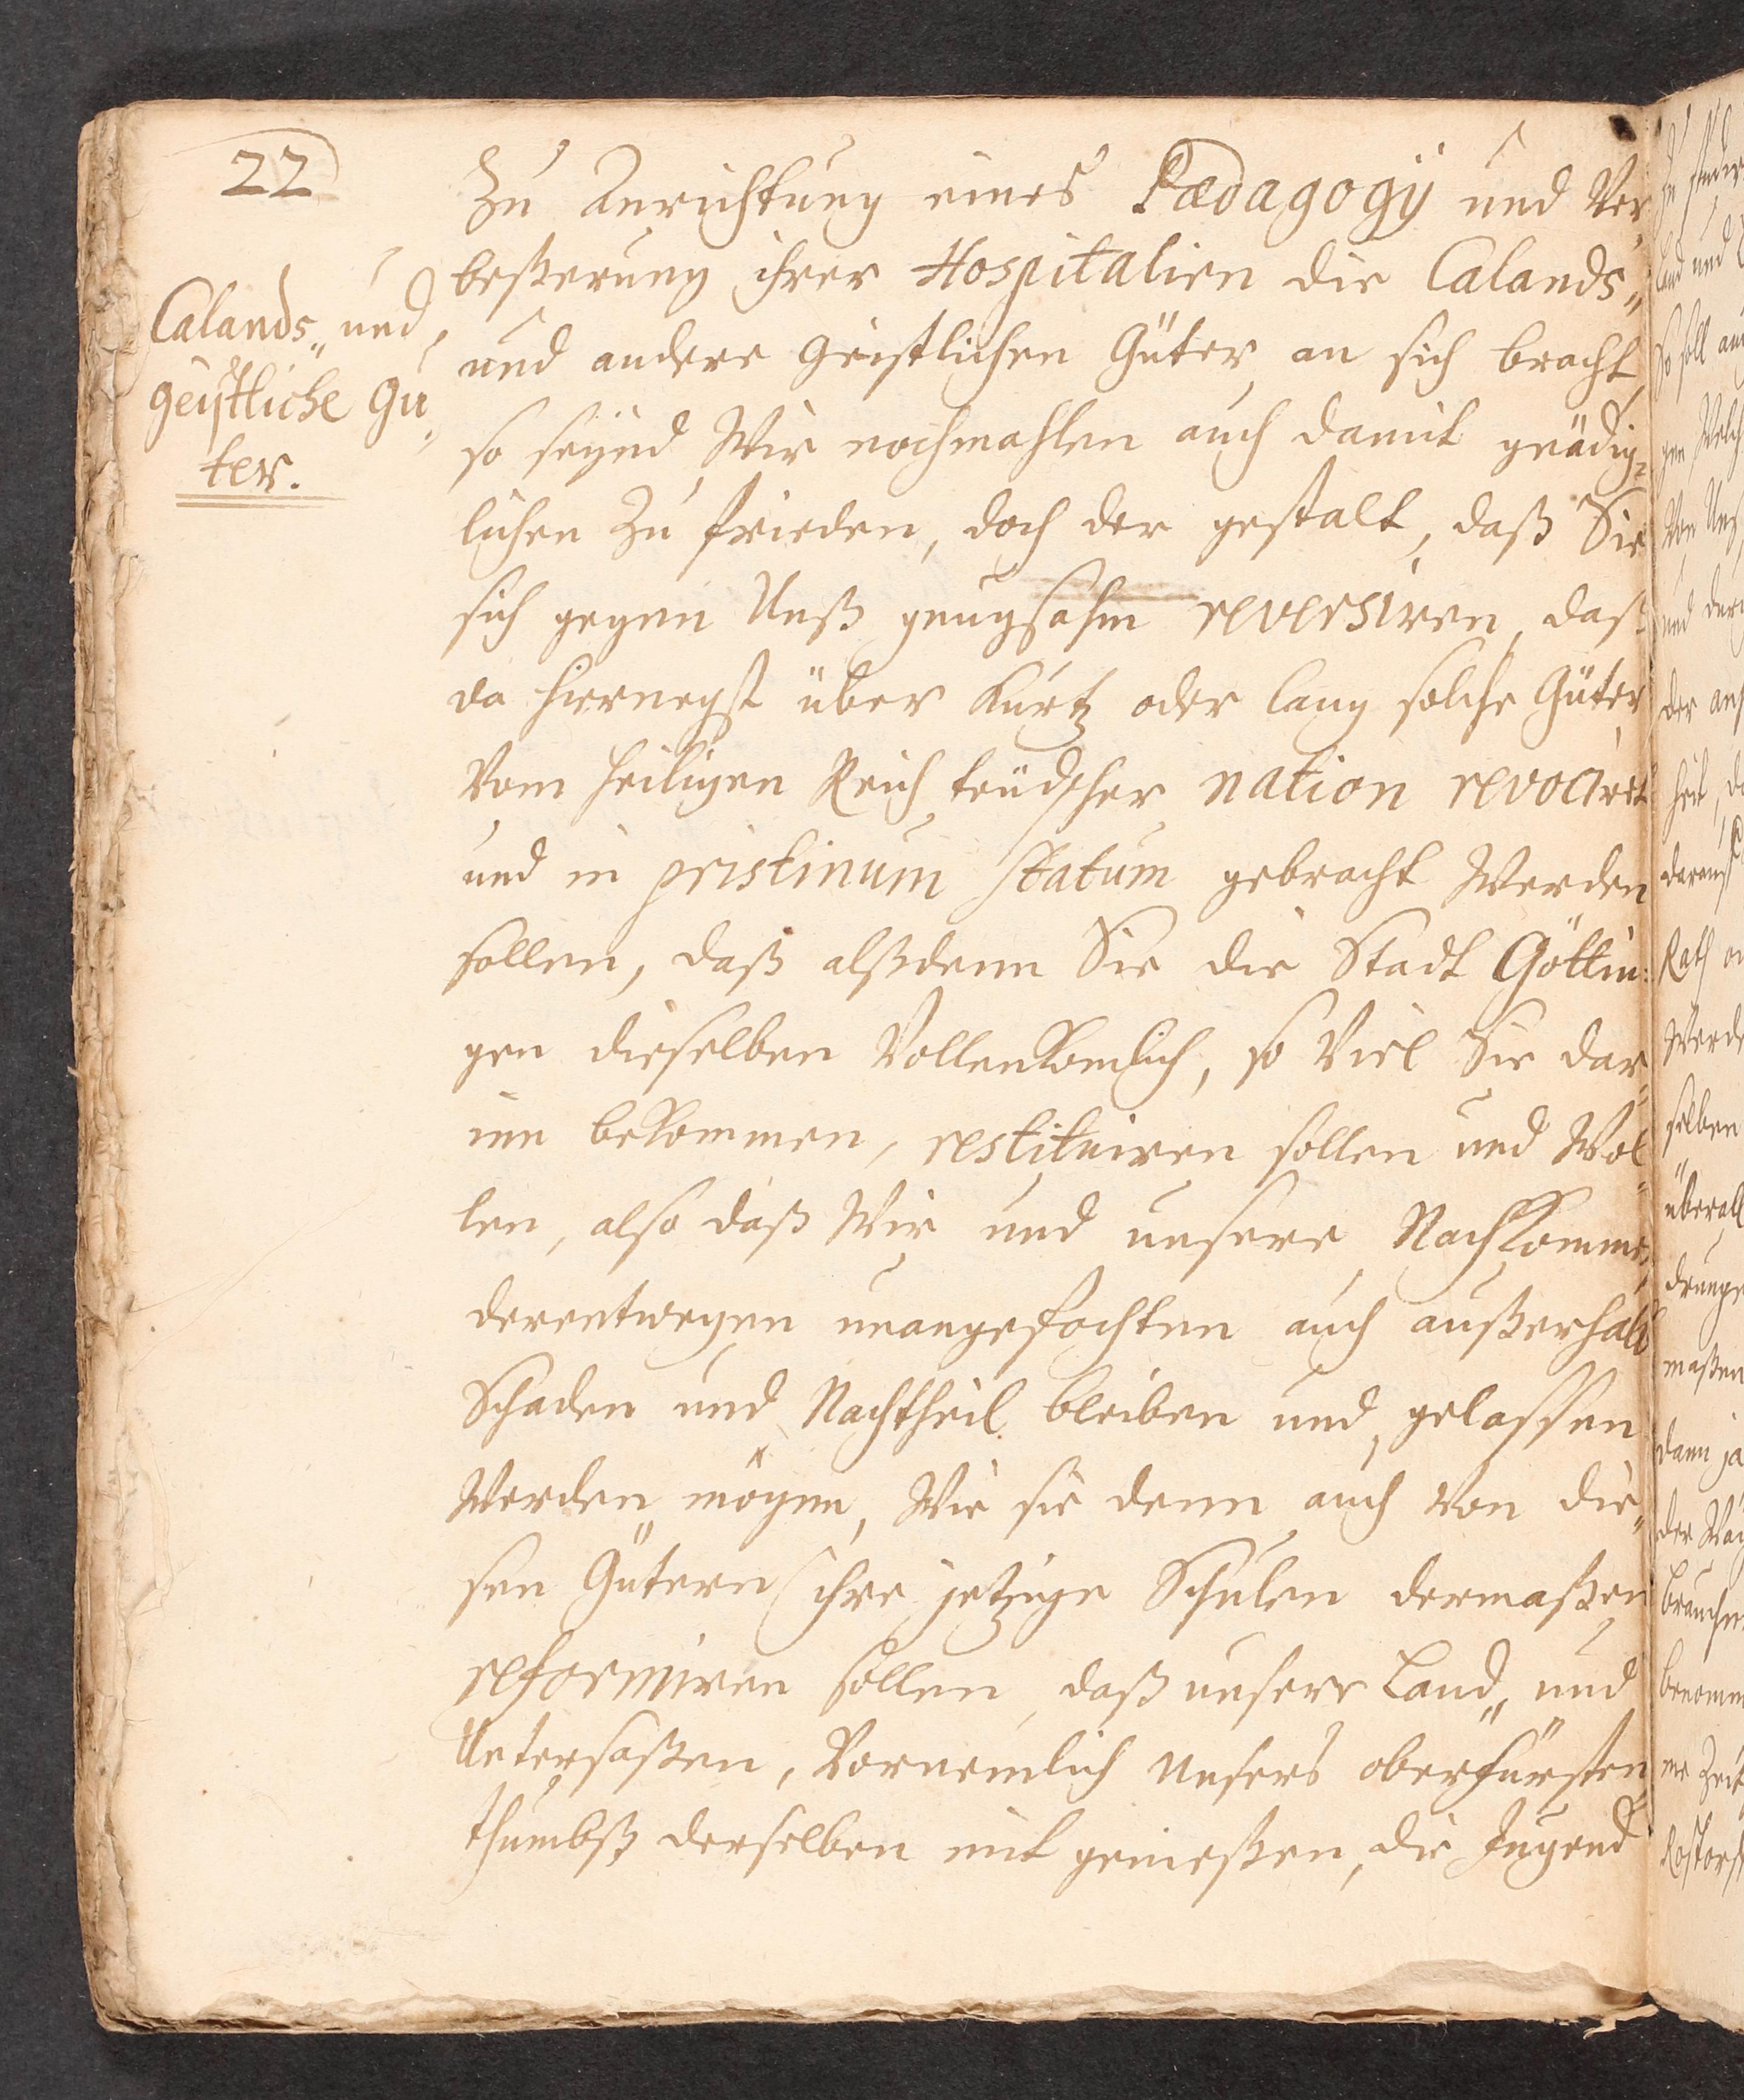 22
Zu Anrichtung eines Pædagogÿ und Ver„
beßerung ihrer Hospitalien die Calands„
und andere geistlichen Güter an sich bracht,
so seÿnd Wir nochmahlen auch damit gnädig=
lichen Zu frieden, doch der gestalt, daß Sie
sich gegen Unß gnugsahm reversiren, daß
da hiernegst über kurtz oder lang solche Güter
Vom heiligen Reich teüdscher nation revociret
und in pristinum statum gebracht Werden
sollen, daß alßdenn Sie die Stadt Göttin:
gen dieselben Vollenkomlich, so Viel Sie dar„
inn bekommen, restituiren sollen und Wol„
len, also daß Wir und unsere Nachkommen
derentwegen unangefochten auch außerhalb
Schaden und Nachtheil bleiben und gelassen
Werden mögen, Wie sie denn auch von die„
sen Gütern ihre jetzige Schulen dermaßen
reformiren sollen, daß unsere Land„ und
Untersaßen, Vornemlich unsers oberfürsten„
thumbß derselben mit genießen, die Jugend
Calands„ und
geistliche Gü„
ter.